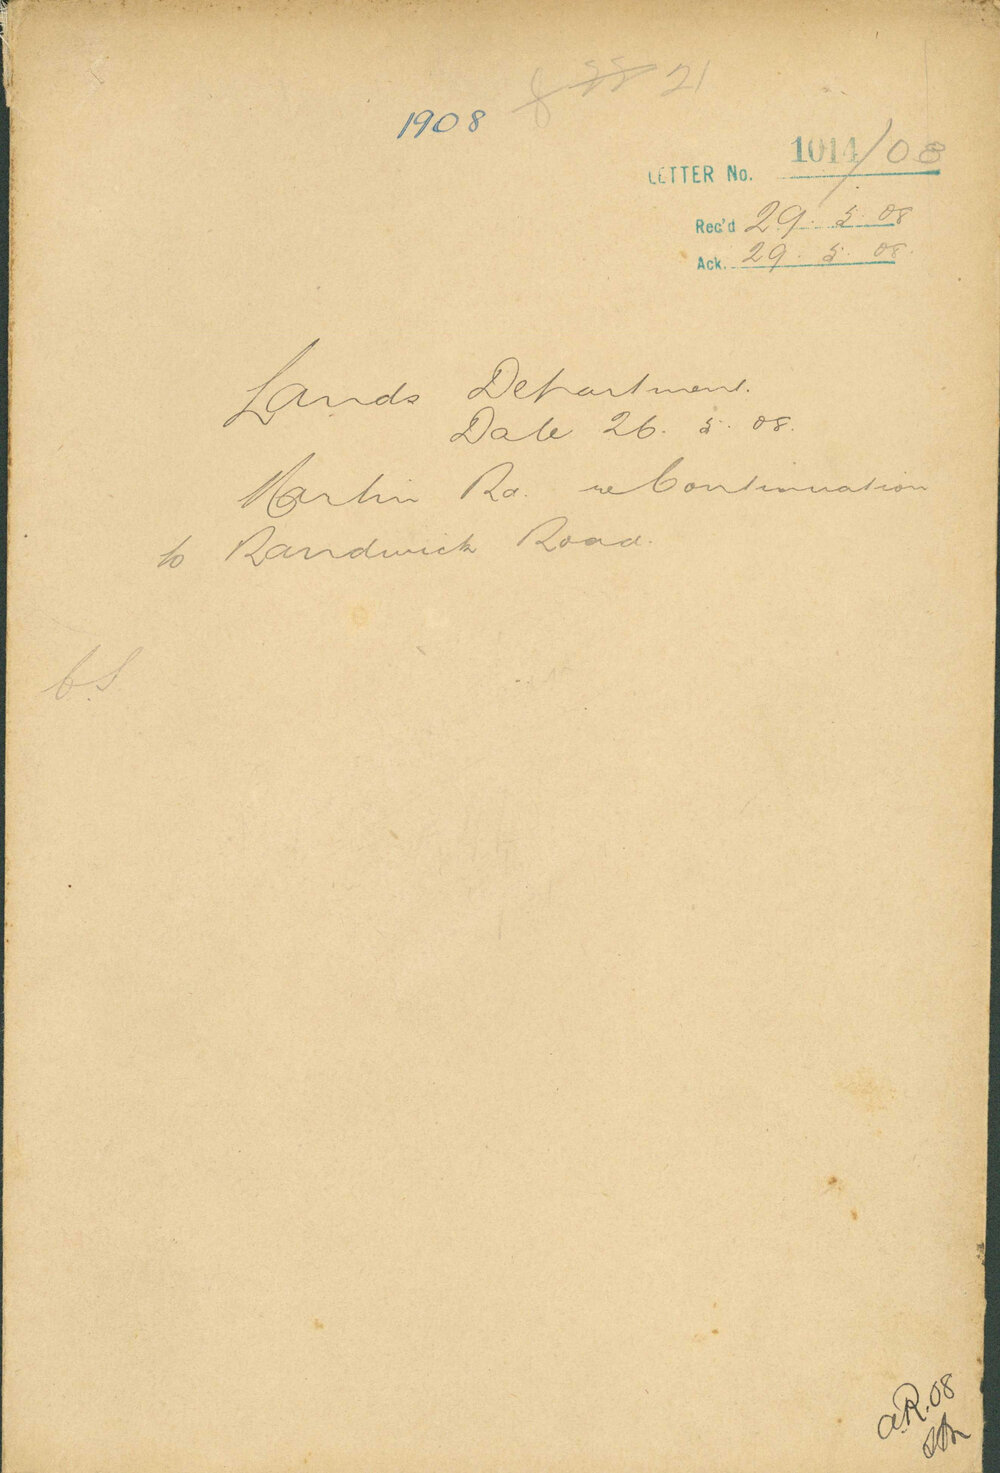 21
1908
LETTER No. 1014/08
Rec'd 29. 5. 08
Ack. 29. 5. 08.
Lands Department.
Date 26. 5. 08.
Martin Rd. re Continuation
to Randwick Road.
aR.08